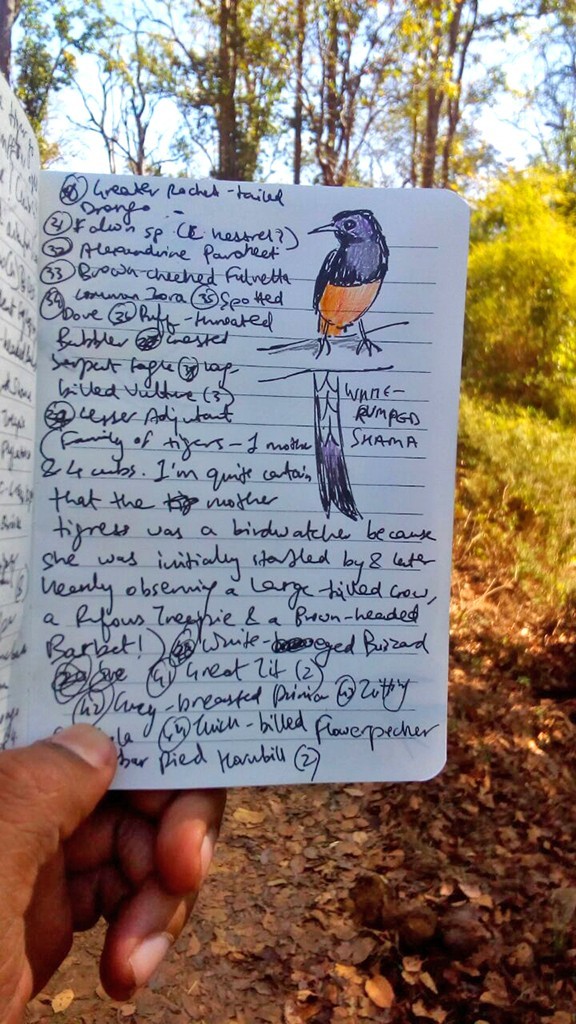 Greater Racket-tailed
Drongo
31 Falcon sp. (Kestrel?)
32 Alexandrine Parakeet
33 Brown-cheeked Fulvetta
34 Common Iora 35 Spotted
Dove 36 Puff-throated
Babbler Crested
Serpent Eagle Long-
billed Vulture (3)
Lesser Adjutant
(Family of tigers - 1 mother
& 4 cubs. I'm quite certain
that the mother
tigress was a birdwatcher because
she was initially startled by & later
keenly observing a Large-billed Crow,
a Rufous Treepie & a Brown-headed
Barbet!) White-eyed Buzzard
41 Great Tit (2)
42 Grey-breasted Prinia 43 Zitting
44 Thick-billed Flowerpecker
Pied Hornbill (2)
WHITE-
RUMPED
SHAMA